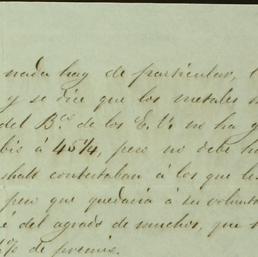 nada hay de particular,
y se dice que los metales
del B.co de los E. U. no ha
á 45¼, pero no debe
contestaban á los que les
pero que quedaria á su
del agrado de muchos, que
% de premio.